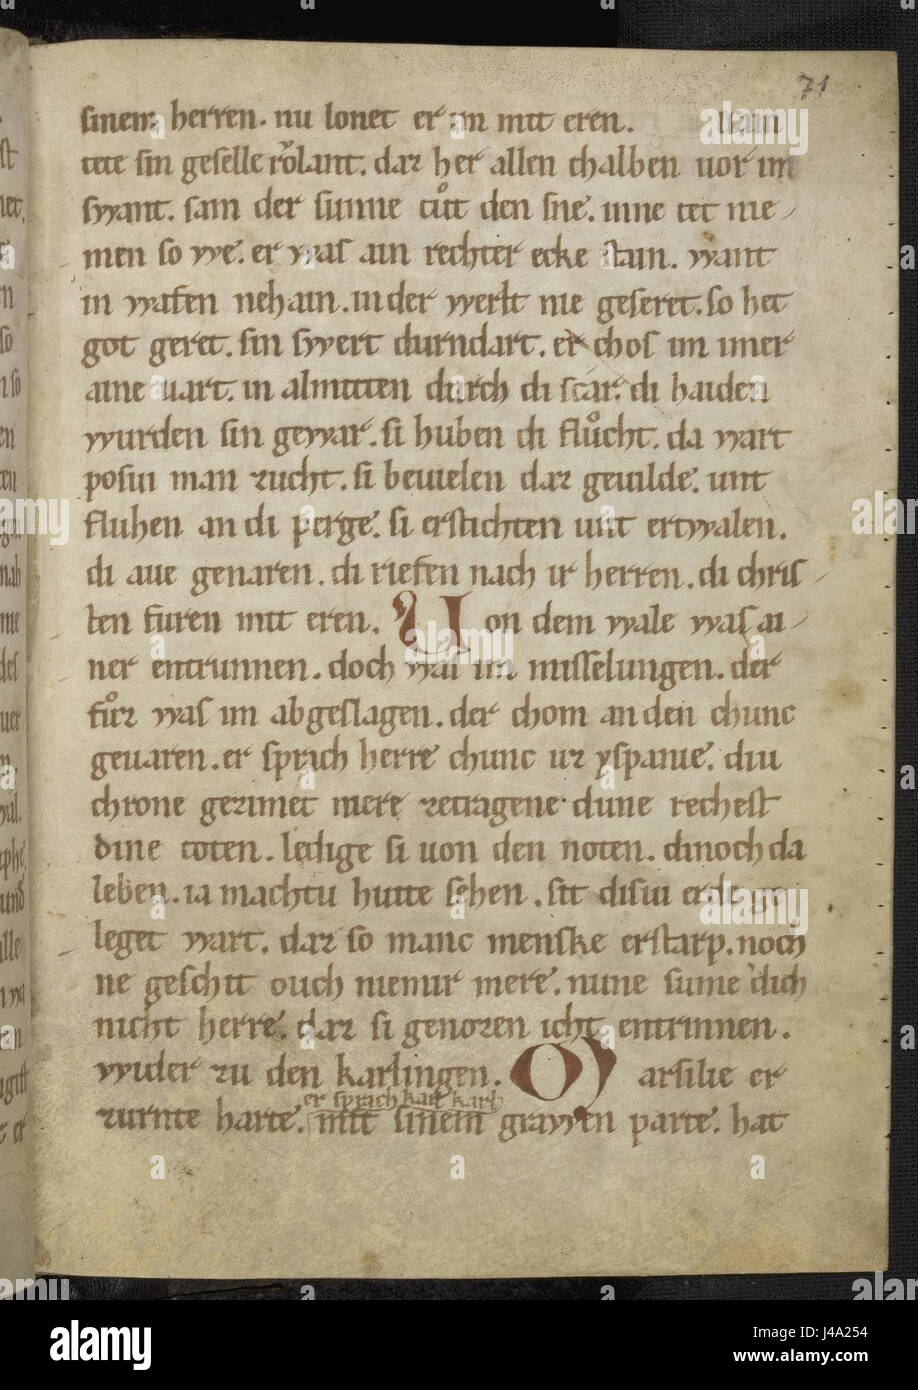 71
sinem herren. nu lonet er im mit eren.
tete sin geselle roͮlant. daz her allen chalben uor im
swant. sam der sunne tuͦt den sne. iune tet nie
men so we. er was ain rechter ecke stain. want
in wafen nehain. in der werlt nie geseret. so het
got geret. sin swert durndart. er chos im imer
aine uart. in almitten durch di scar. di haiden
wurden sin gewar. si huben di fluͦcht. da wart
posiu man zucht. si beuielen daz geuilde. unt
fluhen an di perge. si erstichten unt ertwalen.
di aue genaren. di riefen nach ir herren. di chris
ten furen mit eren. Uon dem wale was ai
ner entrunnen. doch was im misselungen. der
fuͦz was im abgeslagen. der chom an den chunc
geuaren. er sprach herre chunc uz yspanie. diu
chrone gezimet mere zetragene. dune rechest
dine toten. ledige si uon den noten. di noch da
leben. ia machtu hiute sehen. sit disiu erde ge
leget wart. daz so manc menske erstarp. noch
ne geschit ouch niemir mere. nune sume dich
nicht herre. daz si genozen icht entrinnen.
wider zu den karlingen. Marsilie er
er sprach karl
zurnte harte. mit sinem grawen parte. hat
alamy
Image ID: J4A254
www.alamy.com